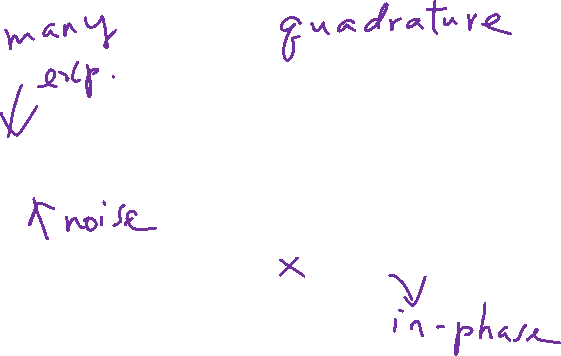 many
exp.
quadrature
noise
x
in-phase